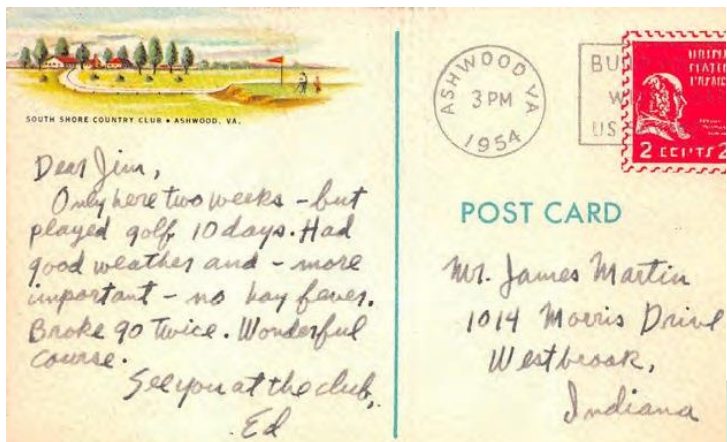 SOUTH SHORE COUNTRY CLUB • ASHWOOD, VA.
Dear Jim,
Only here two weeks - but
played golf 10 days. Had
good weather and - more
important - no hay fever.
Broke 90 twice. Wonderful
course.
See you at the club,
Ed
ASHWOOD VA
3 PM
1954
BU
W
US
2 CENTS 2
POST CARD
Mr. James Martin
1014 Morris Drive
Westbrook,
Indiana